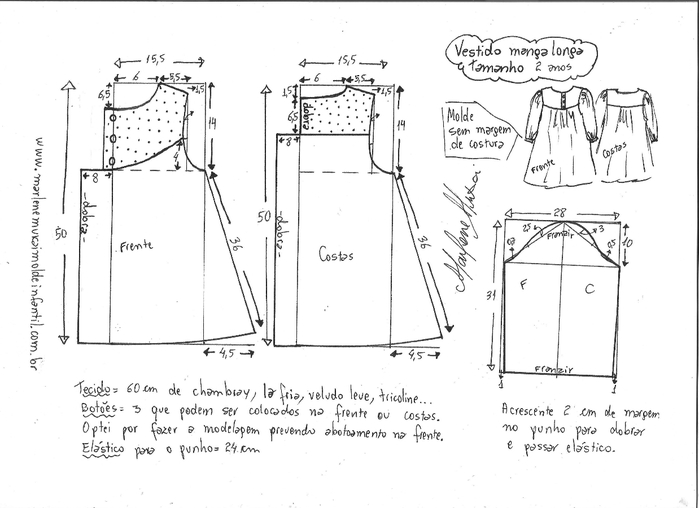 Vestido manga longa
tamanho 2 anos
Molde
sem margem
de costura
Frente
Costas
Marlene Mukai
www.marlenemukaimoldeinfantil.com.br
15,5
6
3,5
1,5
6,5
14
4
8
50
-dobra-
Frente
36
4,5
15,5
6
3,5
1,5
1,5
6,5
dobra
14
8
50
-dobra-
Costas
36
4,5
28
Franzir
3
10
31
F
C
Franzir
1
1
Tecido= 60 cm de chambray, lã fria, veludo leve, tricoline...
Botões= 3 que podem ser colocados na frente ou costas.
Optei por fazer a modelagem prevendo abotoamento na frente.
Elástico para o punho= 24 cm
Acrescente 2 cm de margem
no punho para dobrar
e passar elástico.